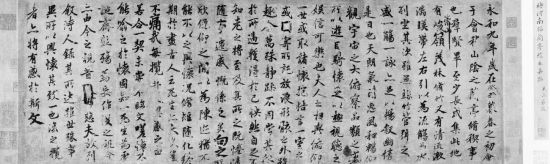 褚河南臨蘭亭絹本真蹟
永和九年歲在癸丑暮春之初會
于會稽山陰之蘭亭脩稧事
也群賢畢至少長咸集此地
有崇山峻領茂林脩竹又有清流激
湍暎帶左右引以為流觴曲水
列坐其次雖無絲竹管弦之
盛一觴一詠亦足以暢敘幽情
是日也天朗氣清惠風和暢仰
觀宇宙之大俯察品類之盛
所以遊目騁懷足以極視聽之
娛信可樂也夫人之相與俯仰
一世或取諸懷抱悟言一室之內
或因寄所託放浪形骸之外雖
趣舍萬殊靜躁不同當其欣
於所遇蹔得於己怏然自足不
知老之將至及其所之既惓情
隨事遷感慨係之矣向之所
欣俛仰之間以為陳跡猶不
能不以之興懷況脩短隨化終
期於盡古人云死生亦大矣豈
不痛哉每攬昔人興感之由
若合一契未嘗不臨文嗟悼不
能喻之於懷固知一死生為虛
誕齊彭殤為妄作後之視今
亦由今之視昔悲夫故列
敘時人錄其所述雖世殊事
異所以興懷其致一也後之攬
者亦將有感於斯文